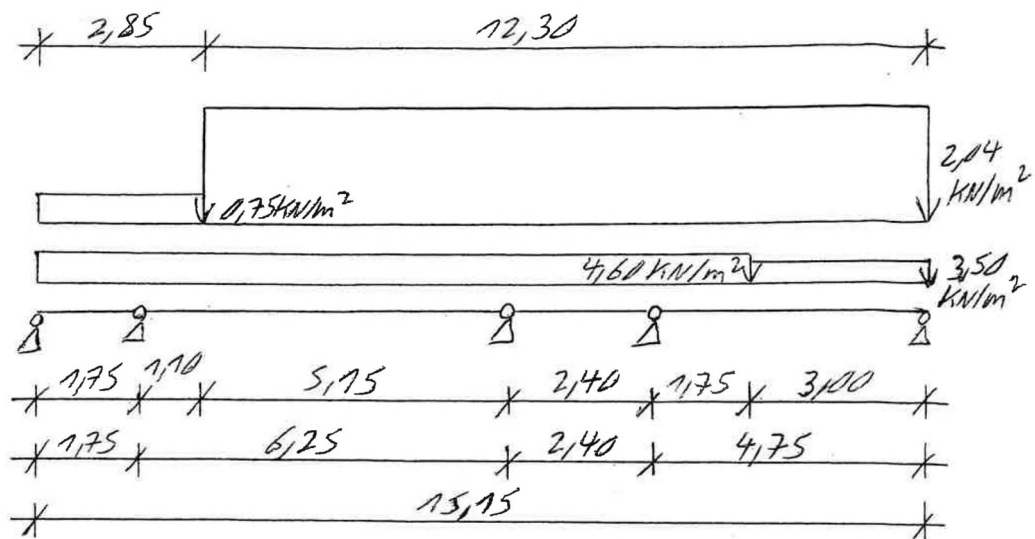 2,85 12,30
2,04
KN/m²
0,75KN/m²
4,60 KN/m² 3,50
KN/m²
1,75 1,10 5,15 2,40 1,75 3,00
1,75 6,25 2,40 4,75
15,15